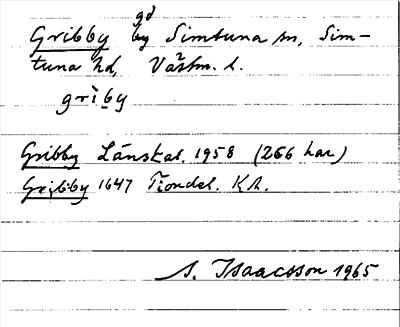 Gribby gd Simtuna sn, Sim-
tuna hd, Västm. l.
grìby
Gribby Länskal. 1958 (266 har)
Greibby 1647 Tiondel. KA.
S. Isaacsson 1965